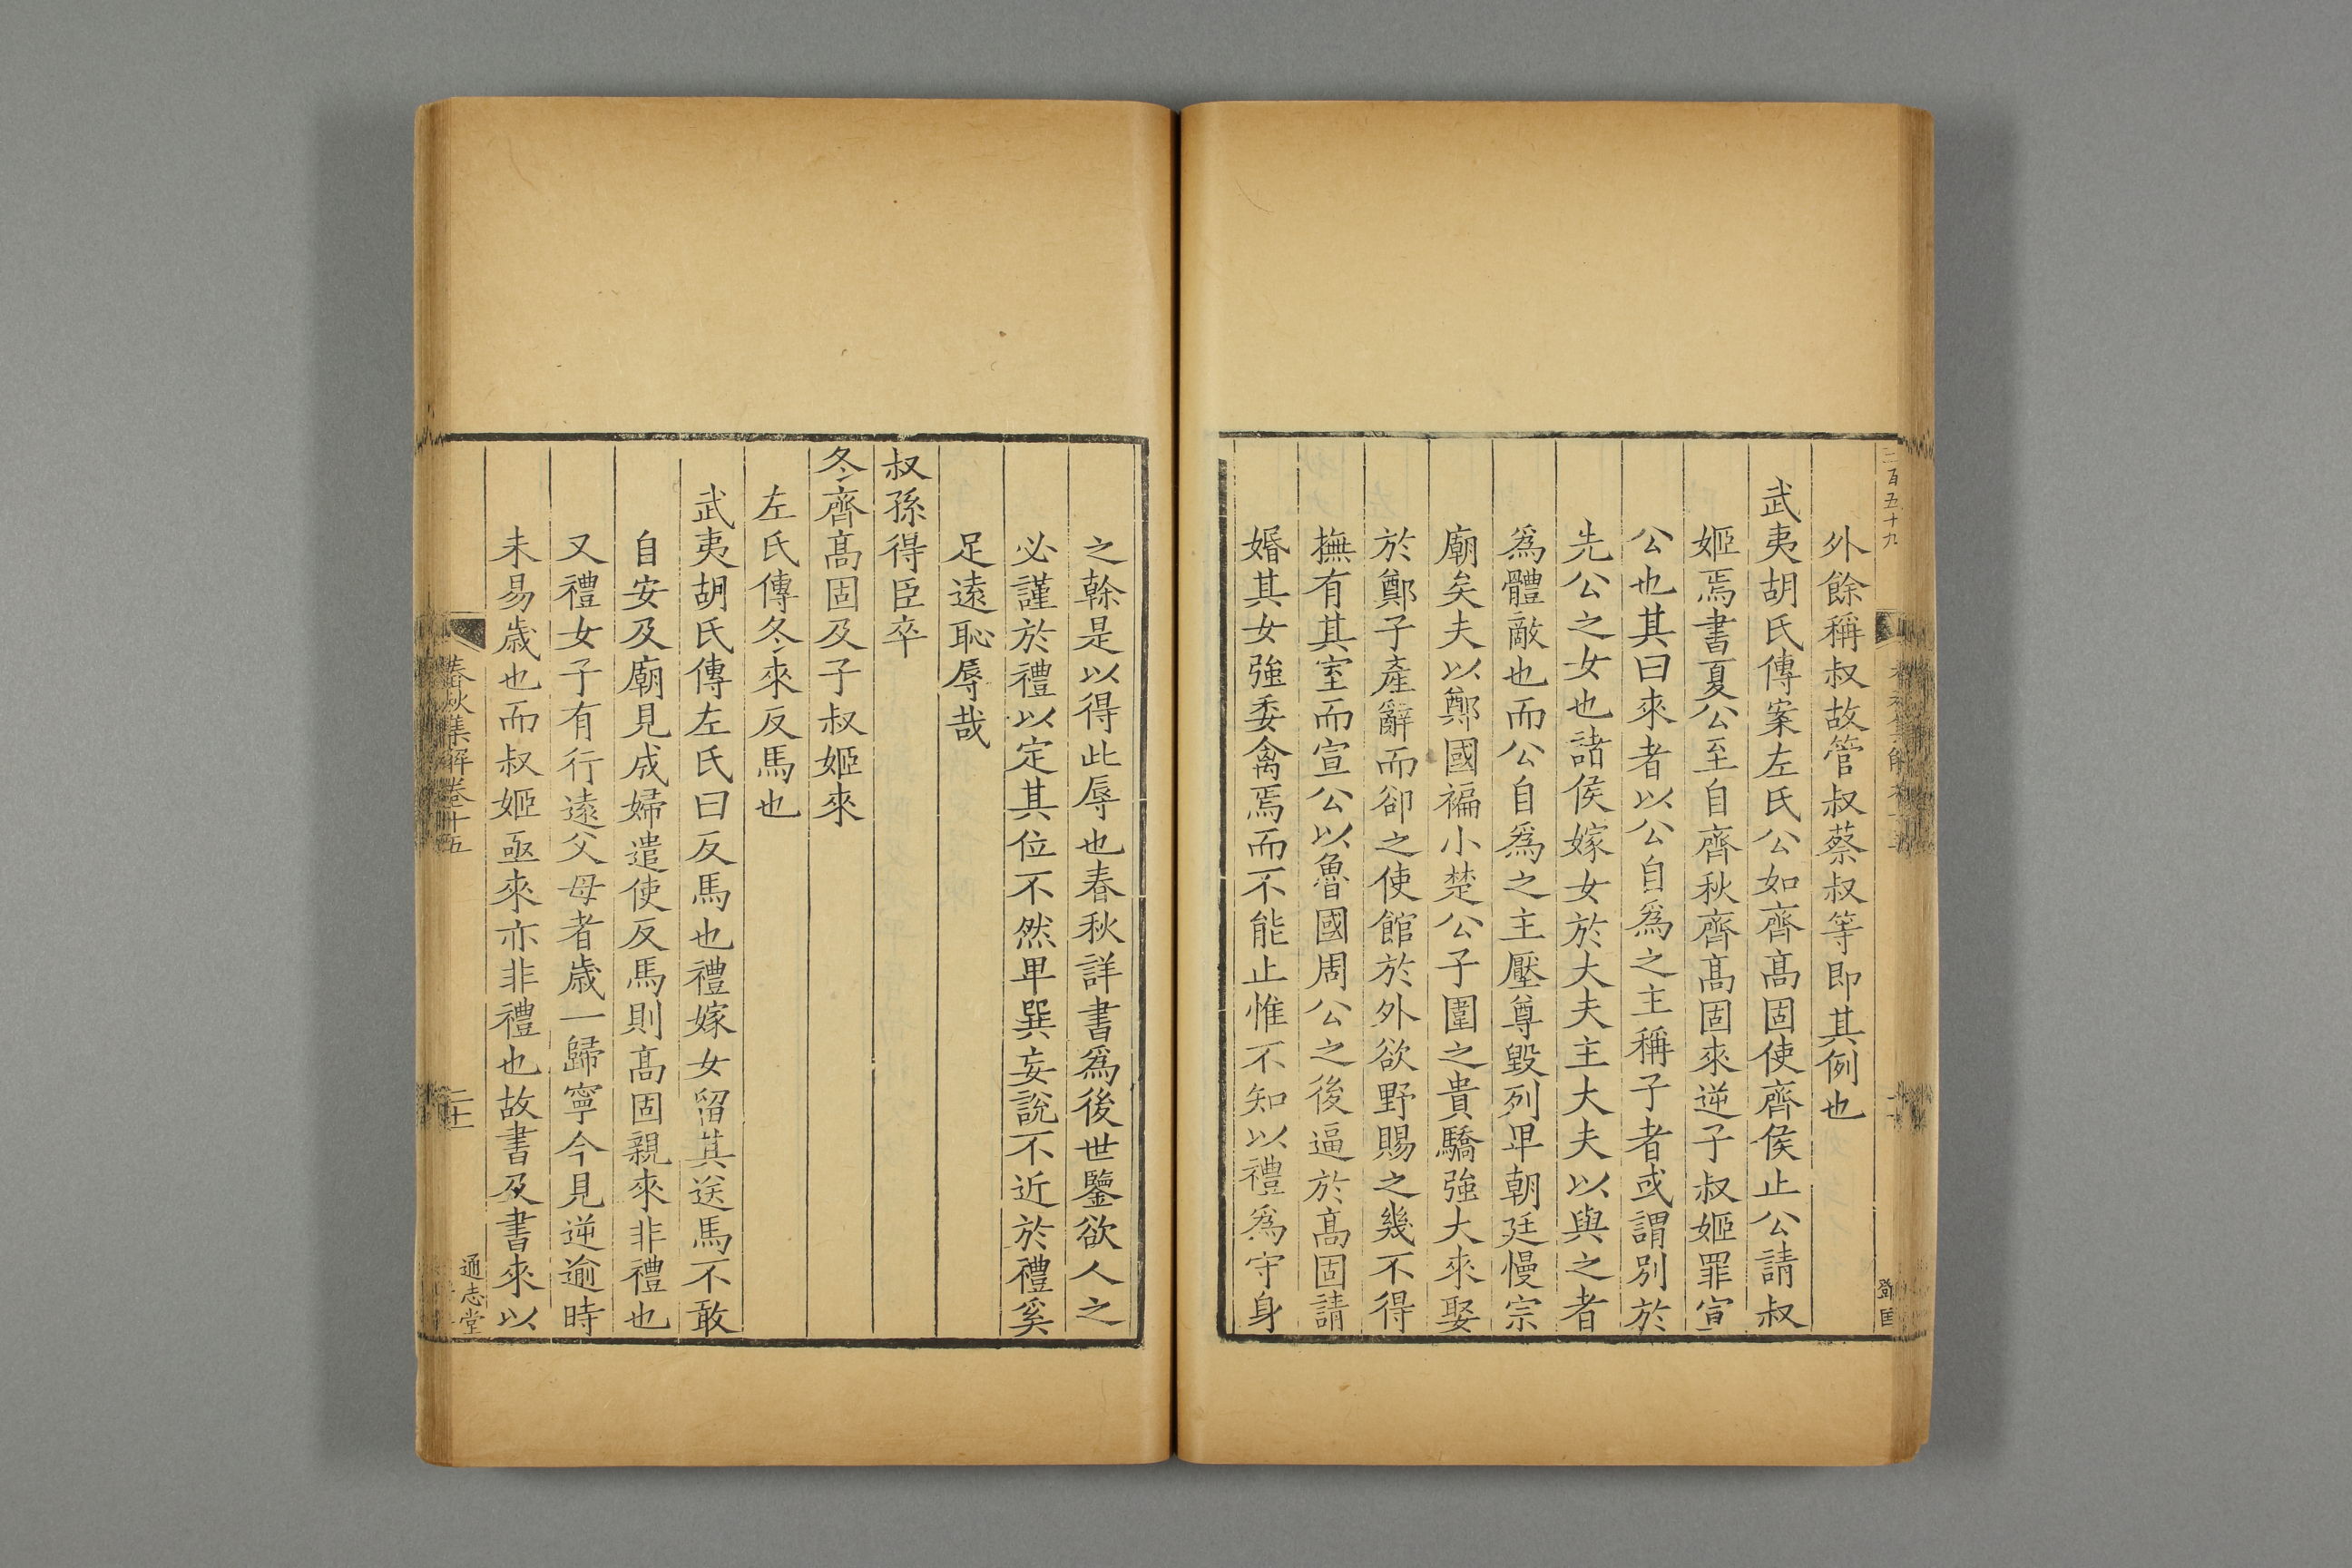 三百五十九
外餘稱叔故管叔蔡叔等即其例也
武夷胡氏傳案左氏公如齊髙固使齊侯止公請叔
姬焉書夏公至自齊秋齊髙固來逆子叔姬罪宣
公也其曰來者以公自爲之主稱子者或謂別於
先公之女也諸侯嫁女於大夫主大夫以與之者
爲體敵也而公自爲之主壓尊毀列卑朝廷慢宗
廟矣夫以鄭國褊小楚公子圍之貴驕強大來娶
於鄭子產辭而卻之使館於外欲野賜之幾不得
撫有其室而宣公以魯國周公之後逼於髙固請
婚其女強委禽焉而不能止惟不知以禮爲守身
之榦是以得此辱也春秋詳書爲後世鑒欲人之
必謹於禮以定其位不然卑巽妄說不近於禮奚
足遠恥辱哉
叔孫得臣卒
冬齊髙固及子叔姬來
左氏傳冬來反馬也
武夷胡氏傳左氏曰反馬也禮嫁女留其送馬不敢
自安及廟見成婦遣使反馬則髙固親來非禮也
又禮女子有行遠父母者歲一歸寧今見逆逾時
未易歲也而叔姬亟來亦非禮也故書及書來以
春秋集解卷十五
通志堂